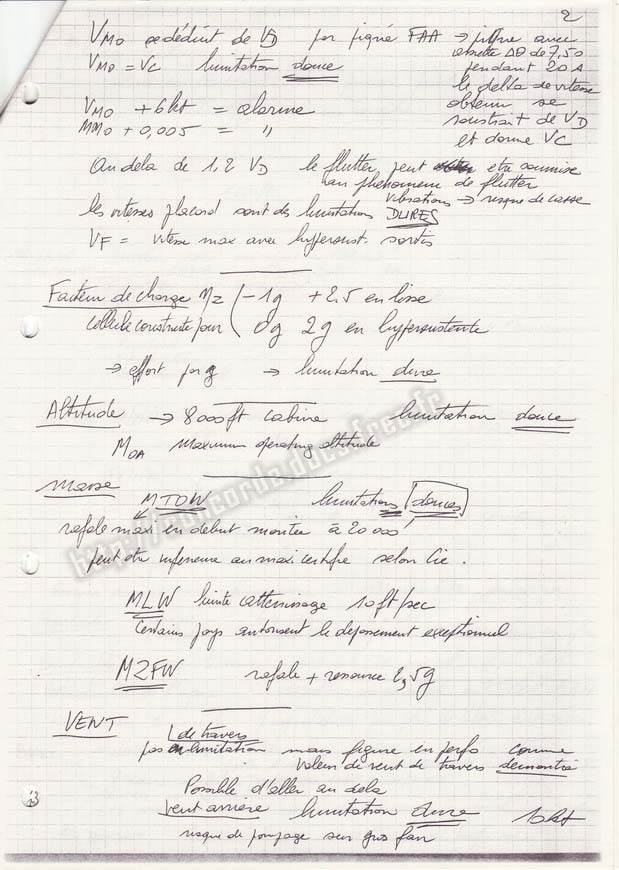 2
VMO se déduit de VD par piqué FAA → piqué avec
assiette Δθ de 7,50
VMO = VC limitation douce
pendant 20 s
le delta de vitesse
VMO + 6 kt = alarme
obtenu se
MMO + 0,005 = "
soustrait de VD
et donne VC
Au delà de 1,2 VD le flutter, peut etre soumise
au phénomène de flutter
vibrations → risque de casse
les vitesses placard sont des limitations DURES
VF = vitesse max avec hypersust. sortis
Facteur de charge Nz ( -1g +2,5 en lisse
cellule construite pour ( 0g 2g en hypersustenté
→ effort par g → limitation dure
Altitude → 8000 ft cabine limitation douce
MOA Maximum operating altitude
Masse
MTOW limitations douces
rafale maxi en début montée à 20 000'
peut etre inférieure au maxi certifié selon Cie.
MLW limite atterrissage 10 ft/sec
Certains pays autorisent le dépassement exceptionnel
MZFW rafale + ressource 2,5g
VENT de travers
pas en limitation mais figure en perfo comme
valeur de vent de travers demontré
Possible d'aller au dela
Vent arrière limitation dure 10kt
risque de pompage sur gros fan